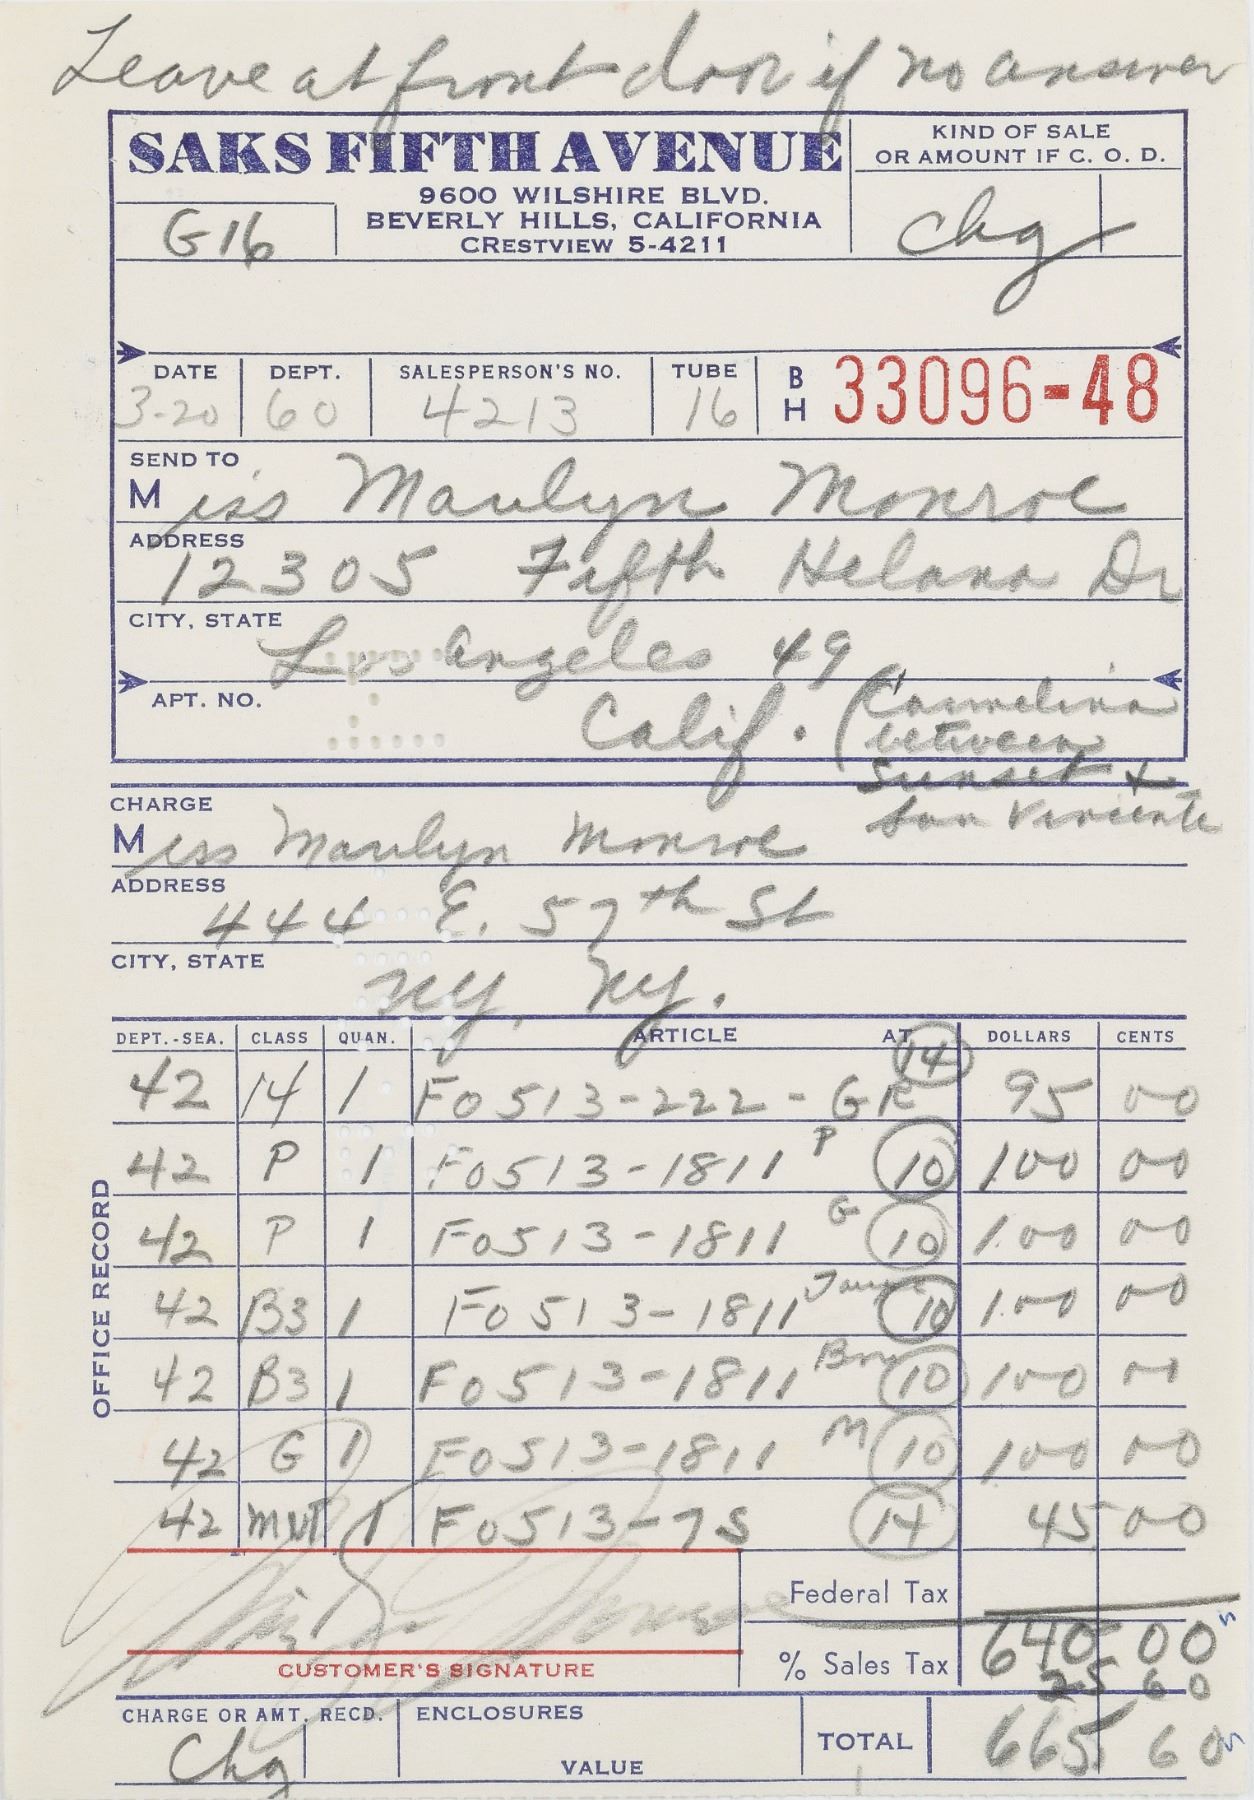 Leave at front door if no answer
SAKS FIFTH AVENUE
9600 WILSHIRE BLVD.
BEVERLY HILLS, CALIFORNIA
CRESTVIEW 5-4211
KIND OF SALE
OR AMOUNT IF C. O. D.
G16
chg
DATE DEPT. SALESPERSON'S NO. TUBE B H 33096-48
3-20 60 4213 16
SEND TO
Miss Marilyn Monroe
ADDRESS
12305 Fifth Helana Dr
CITY, STATE
Los Angeles 49
APT. NO.
Calif. (Carmelina
between
Sunset +
San Vincente
CHARGE
Miss Marilyn Monroe
ADDRESS
444 E. 57th St
CITY, STATE
NY, NY.
DEPT.-SEA. CLASS QUAN. ARTICLE AT DOLLARS CENTS
42 14 1 F0513-222-GR 14 95 00
42 P 1 F0513-1811 P 10 100 00
42 P 1 F0513-1811 G 10 100 00
42 B3 1 F0513-1811 10 100 00
42 B3 1 F0513-1811 10 100 00
42 G 1 F0513-1811 M 10 100 00
42 MNT 1 F0513-7S 14 45 00
OFFICE RECORD
Federal Tax
Marilyn Monroe
% Sales Tax 640 00
25 60
CUSTOMER'S SIGNATURE
CHARGE OR AMT. RECD. ENCLOSURES
Chg
VALUE
TOTAL 665 60